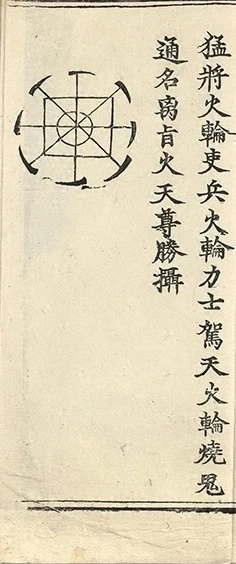 猛將火輪吏兵火輪力士駕天火輪燒鬼
通名离旨火天尊勝攝